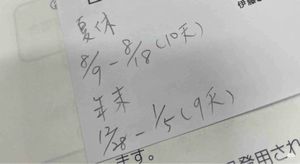 伊藤
夏休
8/9 - 8/18 (10天)
年末
12/28 - 1/5 (9天)
ます。
登用され